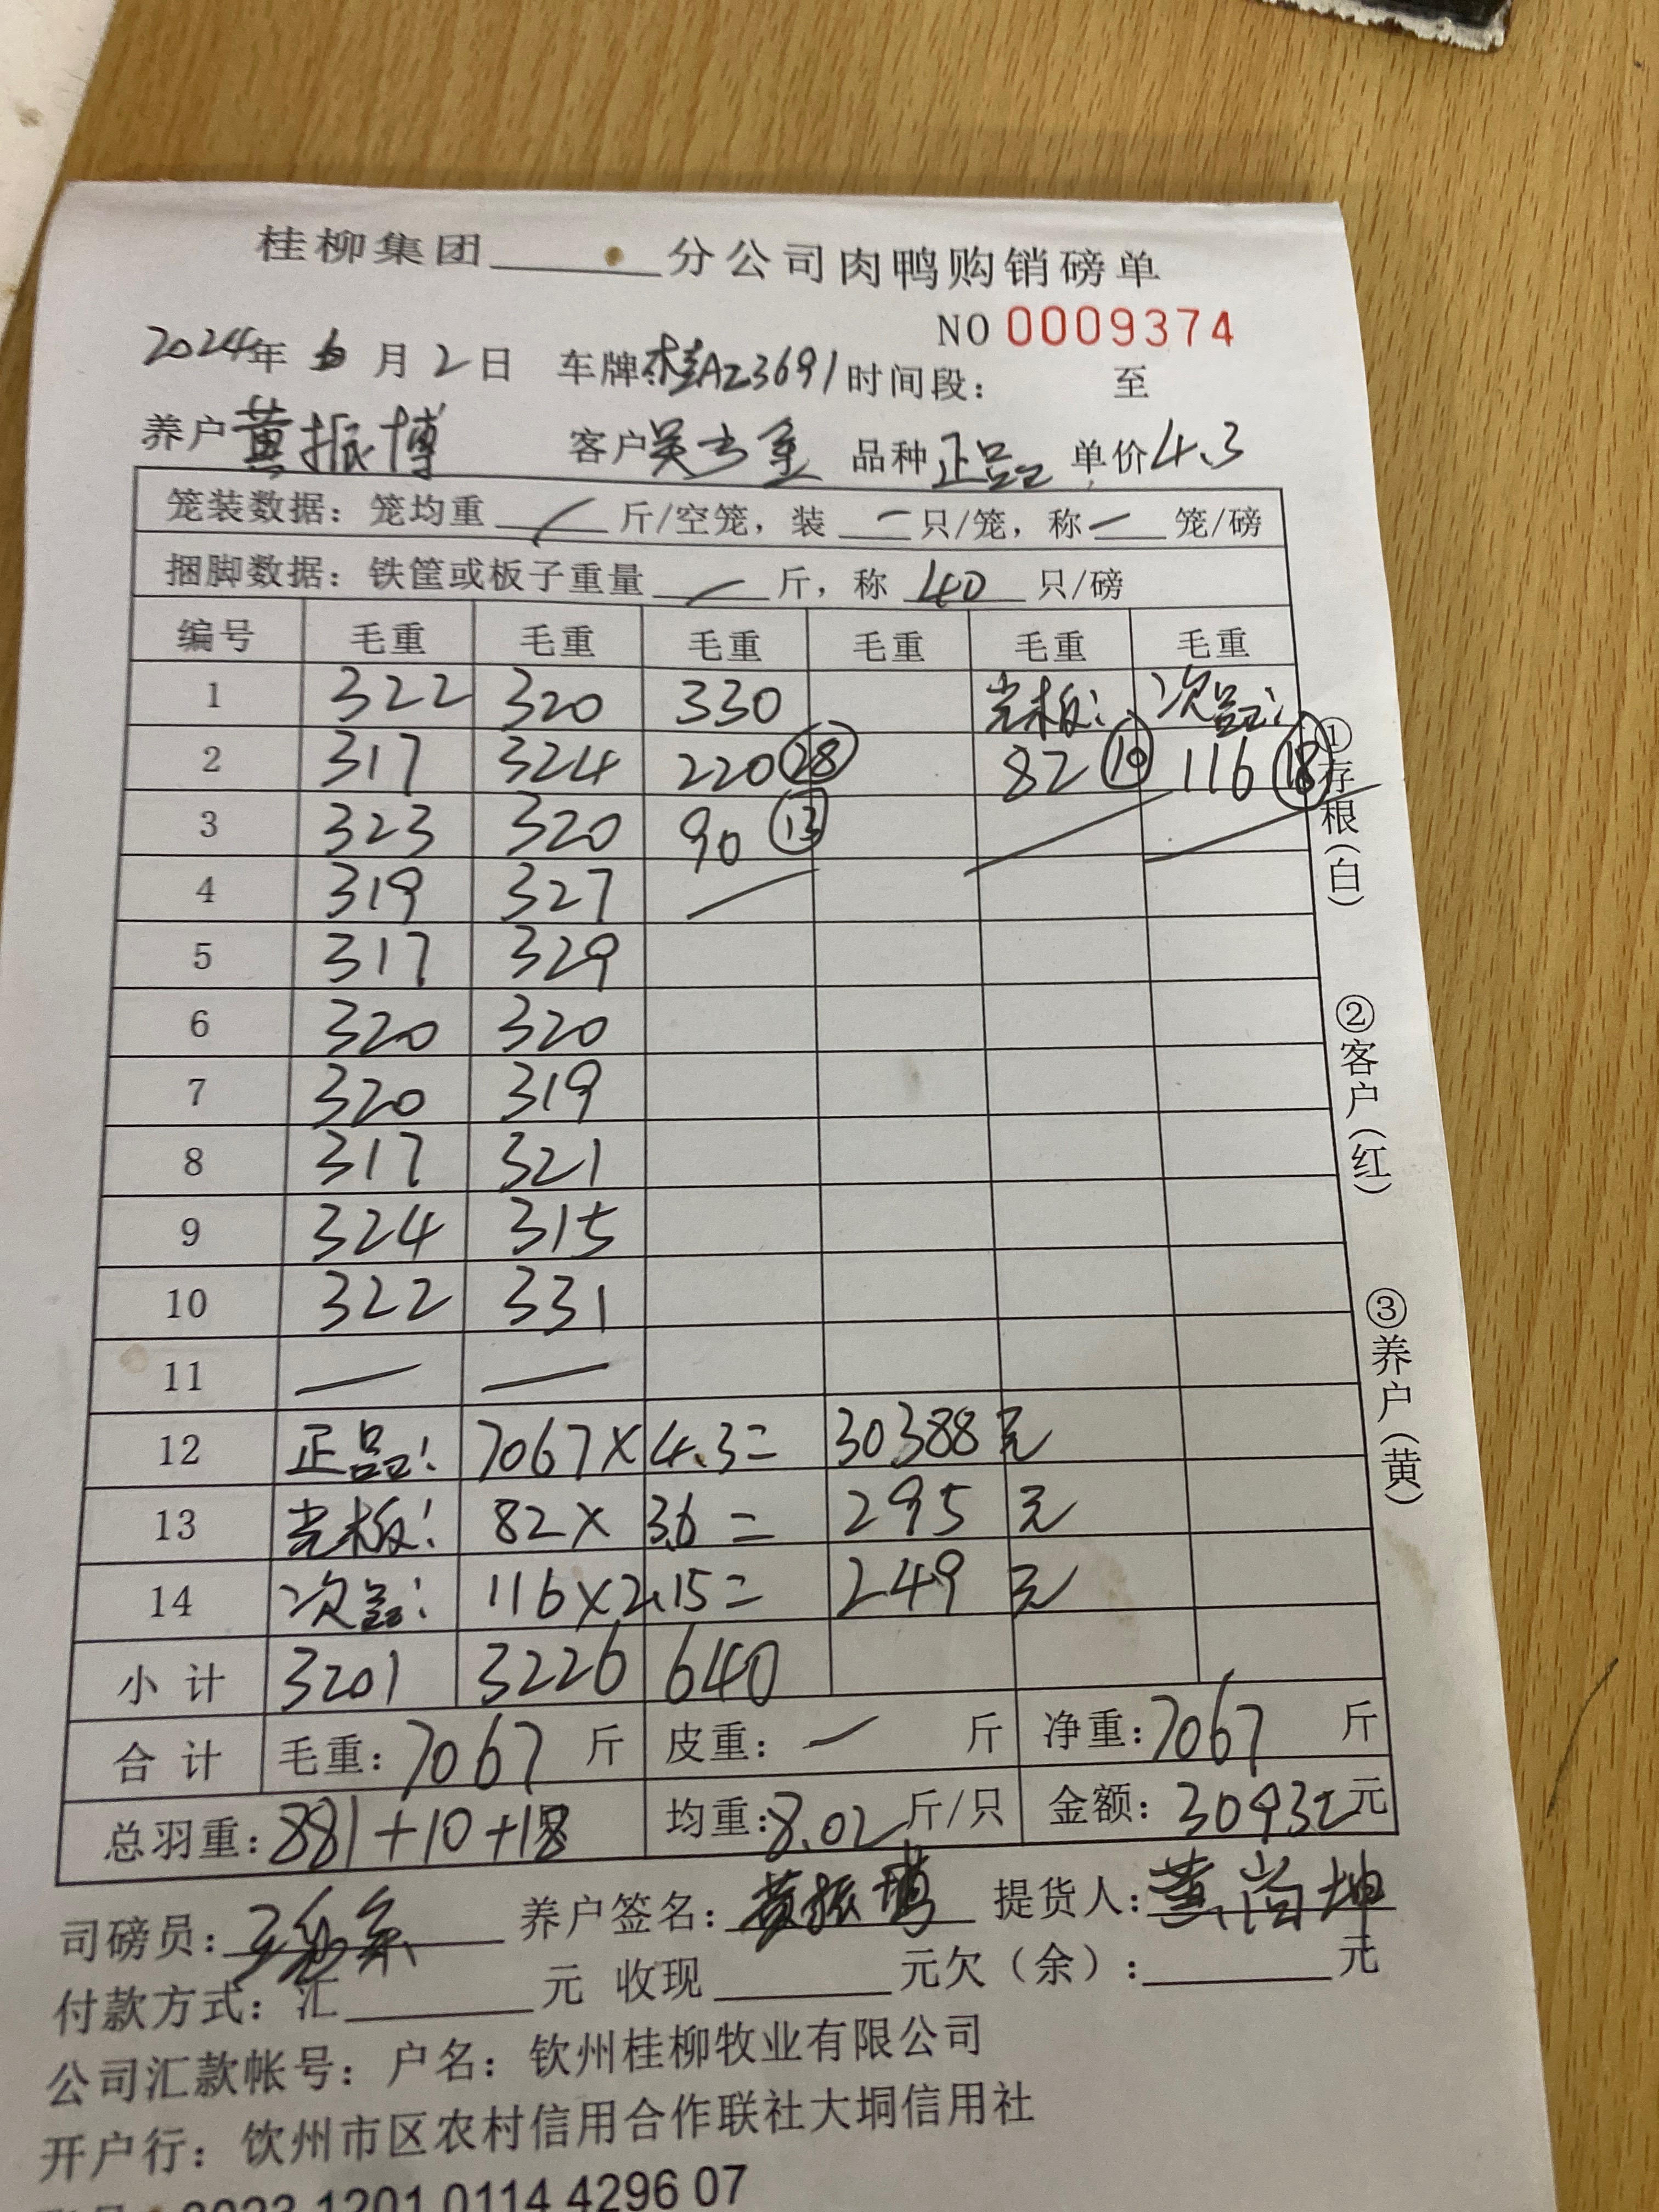 桂柳集团 分公司肉鸭购销磅单
NO 0009374
2024年 6月 2日 车牌:桂AZ3691 时间段: 至
养户 黄振博 客户 品种 正品 单价 4.3
笼装数据:笼均重 斤/空笼,装 只/笼,称 笼/磅
捆脚数据:铁筐或板子重量 斤,称 40 只/磅
编号 毛重 毛重 毛重 毛重 毛重 毛重
1 322 320 330 光板: 次品:
2 317 324 220 28 82 10 116 18
3 323 320 90 13
4 319 327
5 317 329
6 320 320
7 320 319
8 317 321
9 324 315
10 322 331
11
12 正品: 7067×4.3= 30388元
13 光板: 82×3.6= 295元
14 次品: 116×2.15= 249元
小计 3201 3226 640
合计 毛重:7067斤 皮重: 斤 净重:7067斤
总羽重:881+10+18 均重:8.02斤/只 金额:30932元
司磅员: 养户签名:黄振博 提货人:黄尚坤
付款方式:汇 元 收现 元欠(余): 元
公司汇款帐号:户名:钦州桂柳牧业有限公司
开户行:钦州市区农村信用合作联社大垌信用社
1201 0114 4296 07
①存根(白)
②客户(红)
③养户(黄)